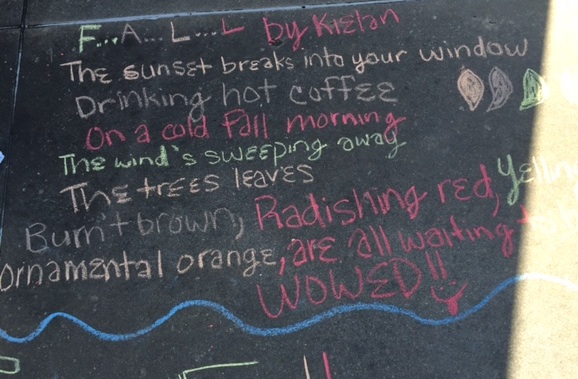 F...A...L...L by Kielan
The sunset breaks into your window
Drinking hot coffee
On a cold fall morning
The wind's sweeping away
The trees leaves
Burnt brown, Radishing red,
Ornamental orange, are all waiting
WOWED!!